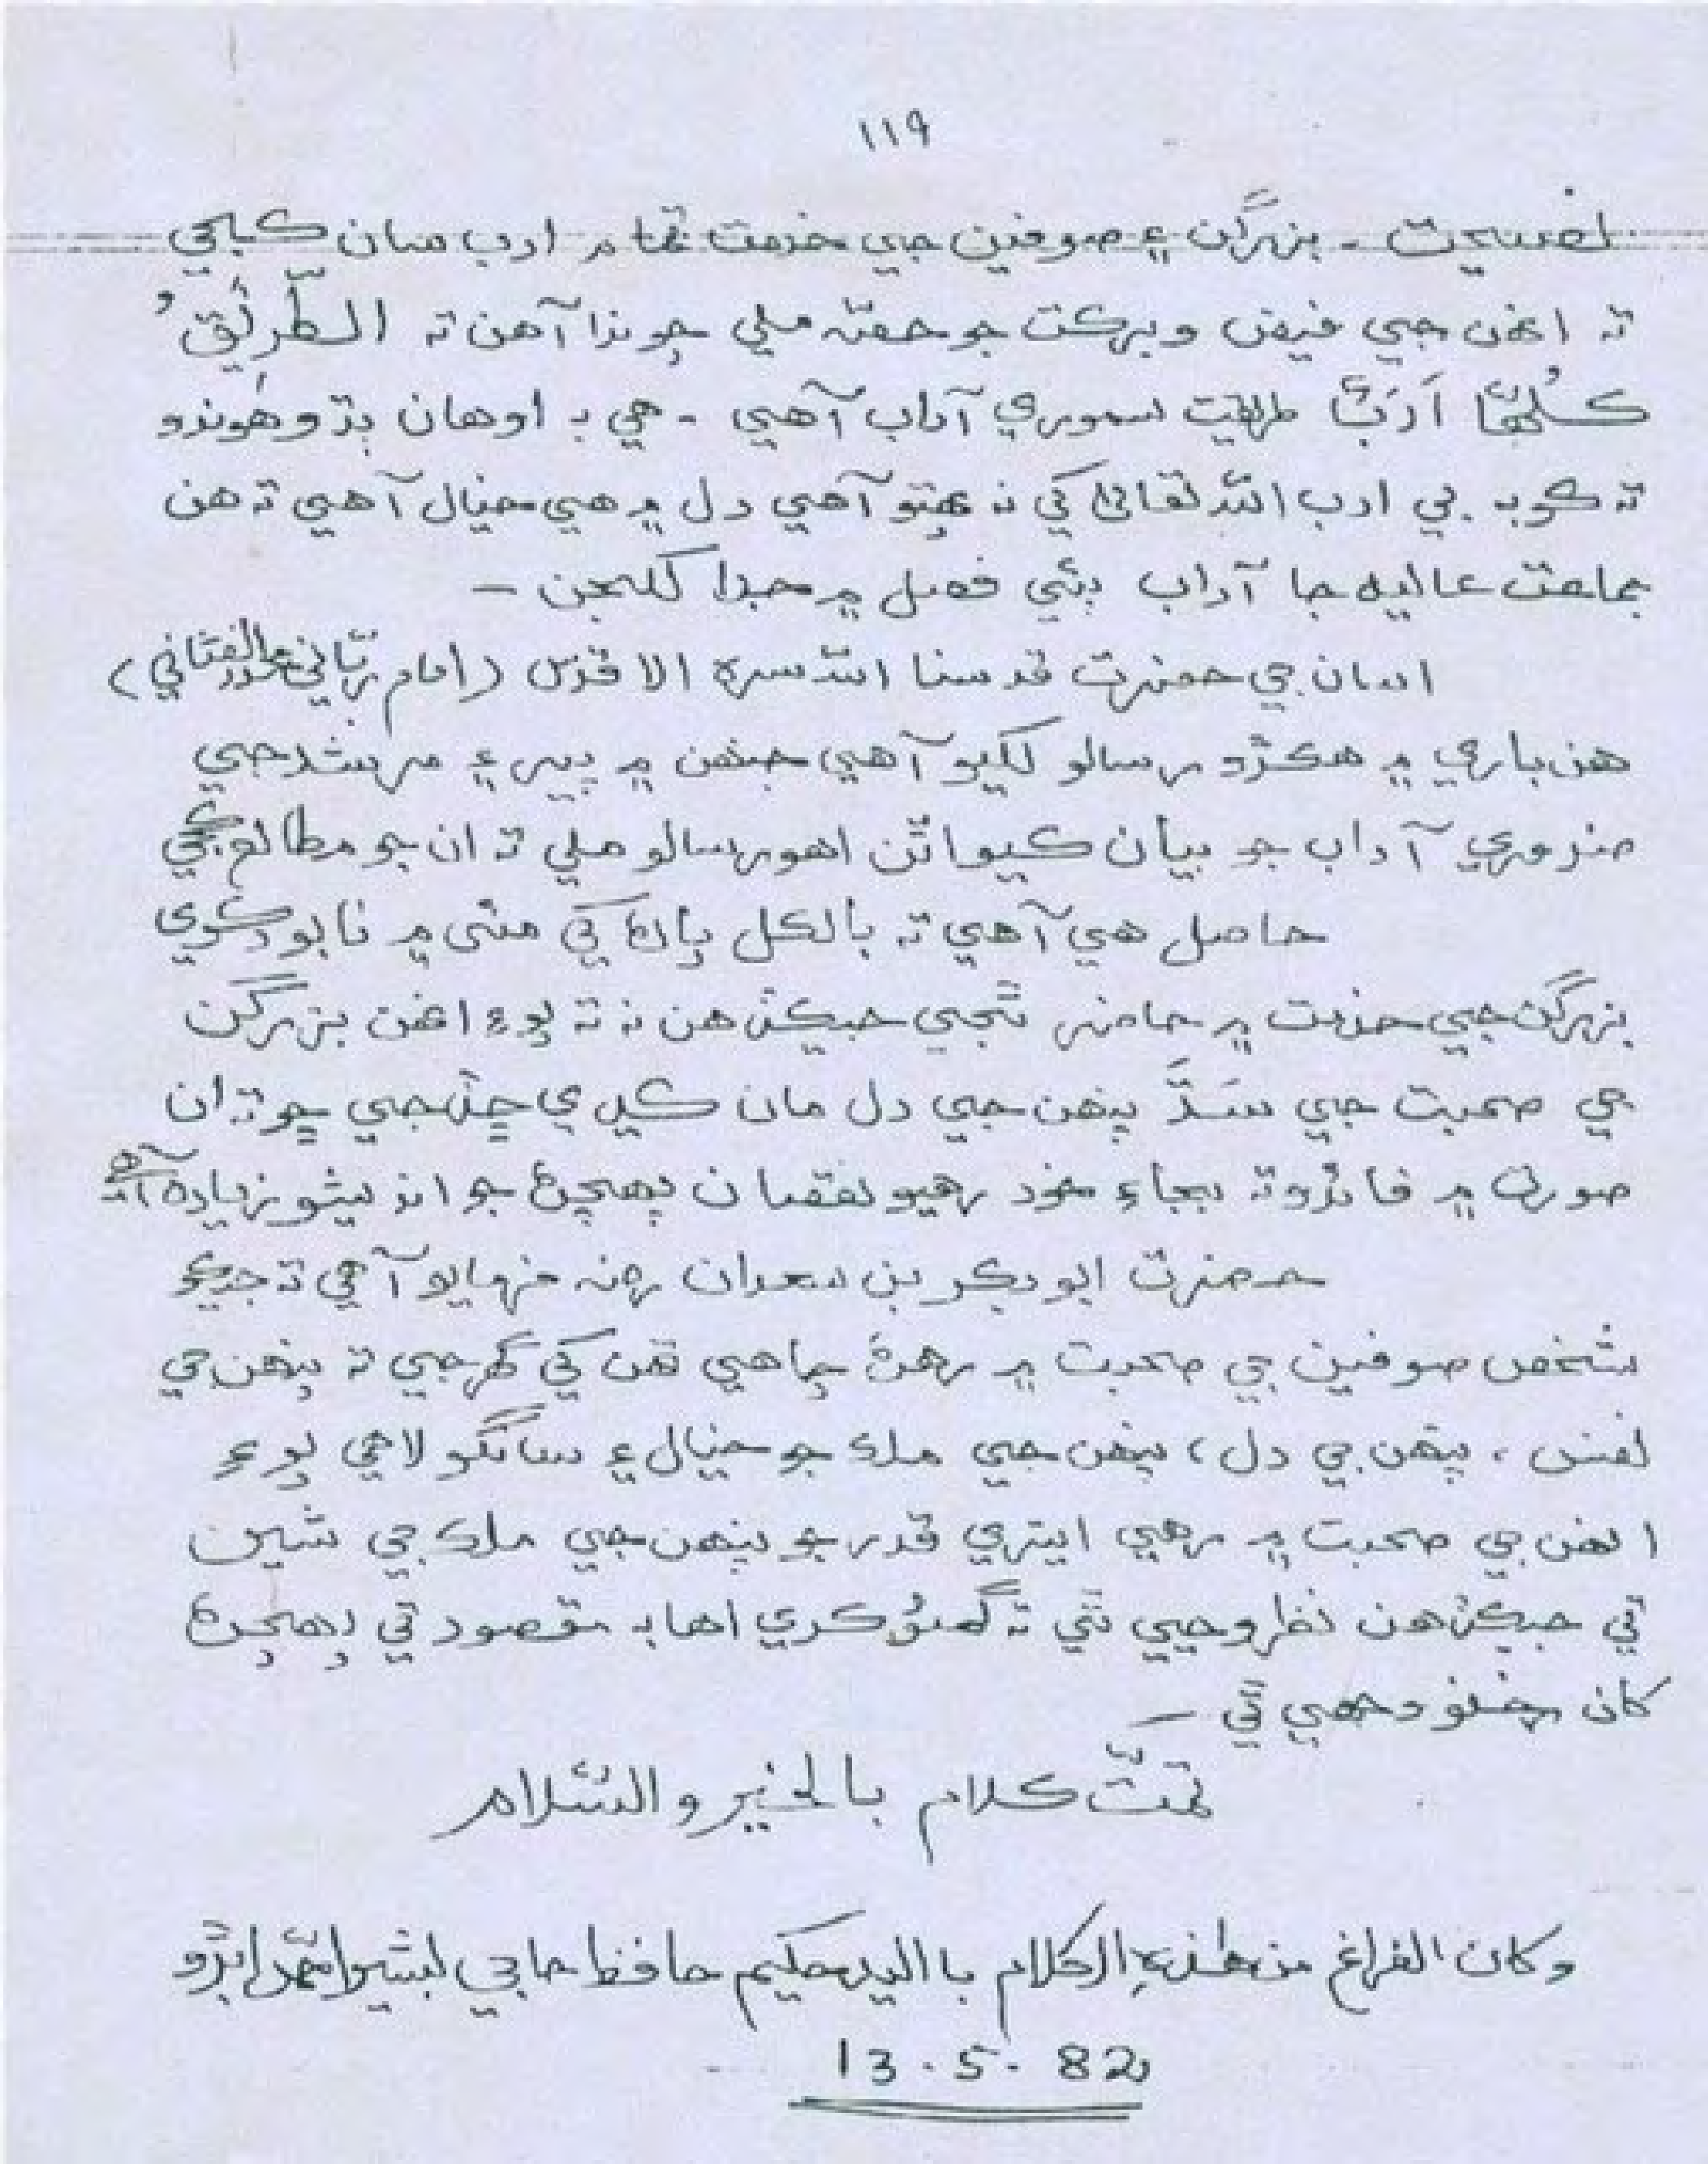 ١١٩
نصيحت - بزرگن ۽ صوفين جي خدمت تمام ادب سان ڪبجي
ته انهن جي فيض و برڪت جو حصّه ملي چوندا آهن ته الطَّرِيْقُ
ڪُلُّهَا اَدَبٌ طريقت سموري آداب آهي - هي به اوهان ٻڌو هوندو
ته ڪو به بي ادب الله تعاليٰ کي نه پهتو آهي دل ۾ هي خيال آهي ته هن
جماعت عاليه جا آداب ٻئي فصل ۾ جدا لکجن -
اسان جي حضرت قدسنا الله سره الاقدس (امام ربّاني مجدد الف ثاني)
هن باري ۾ هڪڙو رسالو لکيو آهي جنهن ۾ پير ۽ مرشد جي
ضروري آداب جو بيان ڪيو اٿن اهو رسالو ملي ته ان جو مطالع ڪجي
حاصل هي آهي ته بالڪل پاڻ کي مٽي ۾ نابود ڪري
بزرگن جي خدمت ۾ حاضر ٿجي جيڪڏهن نه ته پوءِ انهن بزرگن
جي صحبت جي سَڌَ پنهن جي دل مان ڪڍي ڇڏجي ڇو ته ان
صورت ۾ فائدو ته بجاءِ خود رهيو نقصان پهچڻ جو انديشو زياده آهي
حضرت ابوبڪر بن سعدان رحه فرمايو آهي ته جيڪو
شخص صوفين جي صحبت ۾ رهڻ چاهي تهن کي گهرجي ته پنهن جي
نفس، پنهن جي دل، پنهن جي ملڪ جو خيال ۽ سانگو لاهي پوءِ
انهن جي صحبت ۾ رهي ايتري قدر جو پنهن جي ملڪ جي شين
تي جيڪڏهن نظر وجهي ٿي ته گهڻو ڪري اها به مقصود تي پهچڻ
کان وجهي ٿي -
تمّت ڪلام بالخير والسّلام
وكان الفراغ من هذه الكلام با اليد حكيم حافظ حاجي بشير احمد ابڙو
13.5.82